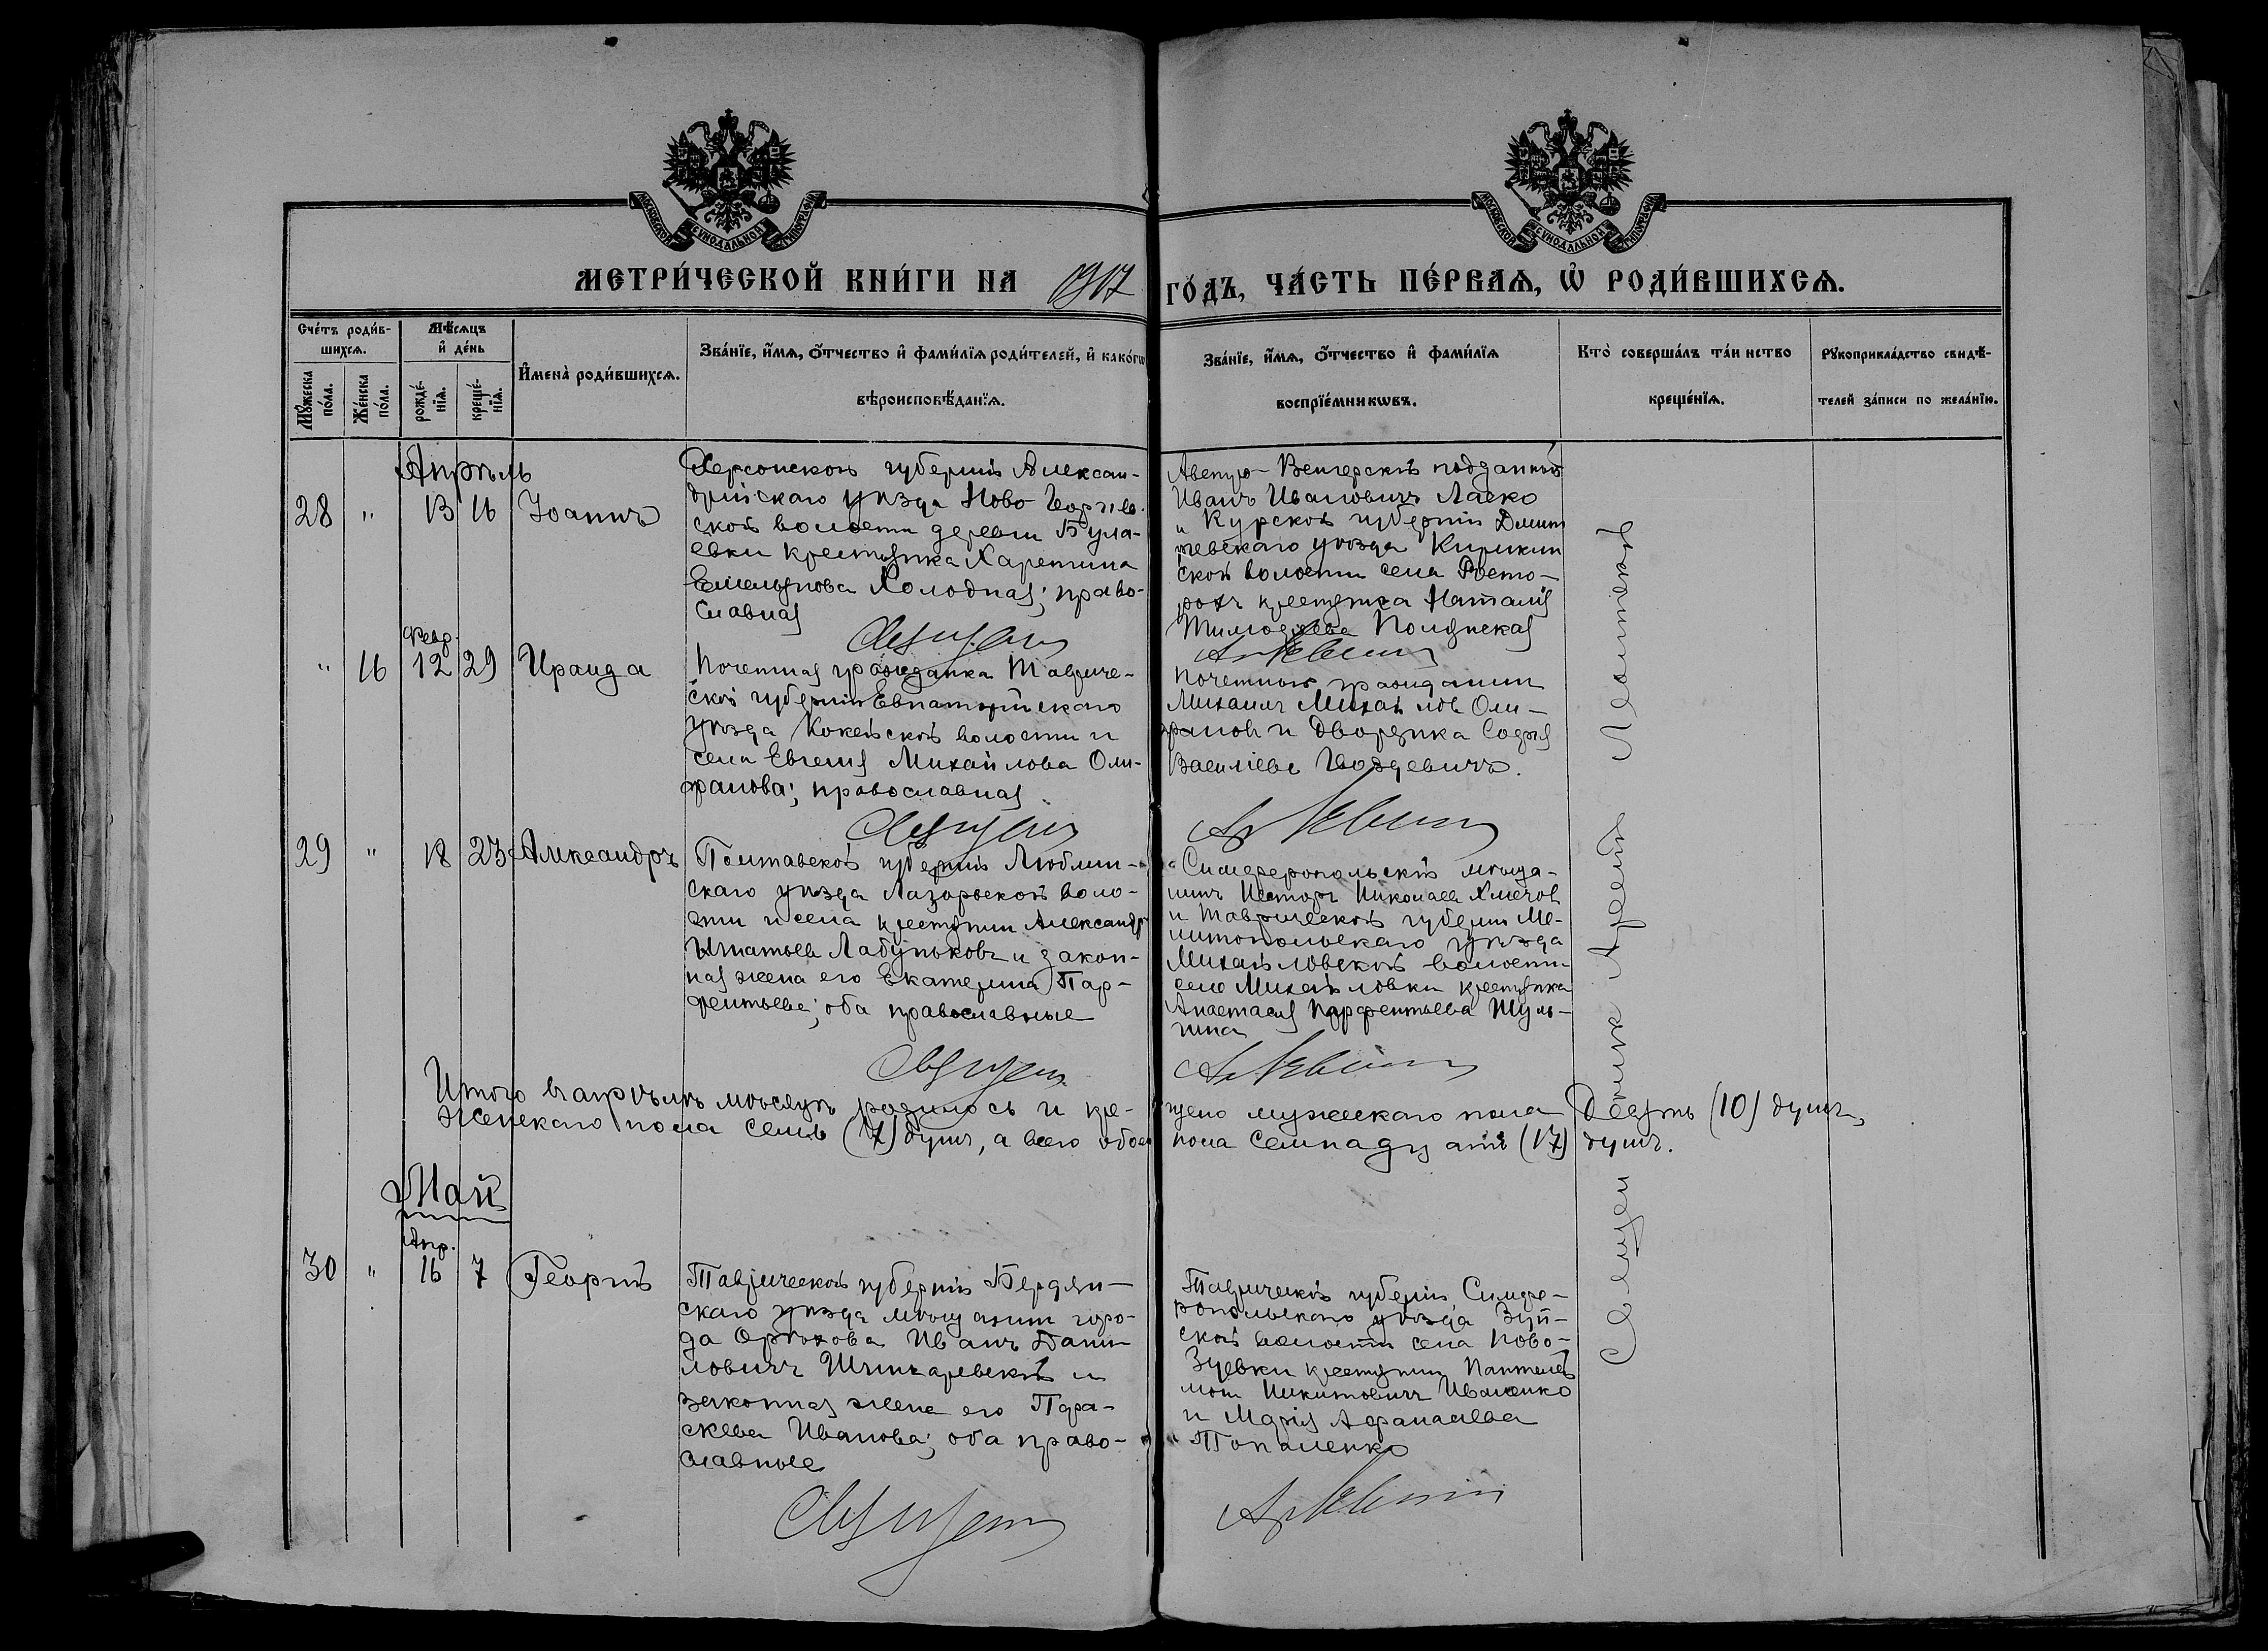 МОСКОВСКОЙ СѴНОДАЛЬНОЙ ТИПОГРАФІИ
МОСКОВСКОЙ СѴНОДАЛЬНОЙ ТИПОГРАФІИ
МЕТРИ́ЧЕСКОЙ КНИ́ГИ НА 1917 ГО́ДЪ, ЧА́СТЬ ПЕ́РВАѦ, Ѡ РОДИ́ВШИХСѦ.
Сче́тъ роди́в-
шихсѧ.
Мꙋжеска по́ла.
Же́нска по́ла.
Мѣ́сѧцъ и де́нь
рожде́-
нїѧ.
креще́-
нїѧ.
И҆мена̀ роди́вшихсѧ.
Зва́нїе, и҆́мѧ, ѻ҆́тчество и҆ фами́лїѧ роди́телей, и҆ како́гѡ
вѣроисповѣ́данїѧ.
Зва́нїе, и҆́мѧ, ѻ҆́тчество и҆ фами́лїѧ
воспрїе́мникѡвъ.
Кто̀ соверша́лъ та́инство
креще́нїѧ.
Рꙋкоприкла́дство свидѣ́-
телей за́писи по жела́нїю.
Апрѣль
28 " 13 16 Іоаннъ
Херсонской губерніи Алексан-
дрійскаго уѣзда Ново-Георгіев-
ской волости деревни Була-
евки крестьянка Харитина
Емельянова Холодная; право-
славная
Австро-Венгерскій подданный
Иванъ Ивановичъ Ласко
и Курской губерніи Дмит
ріевскаго уѣзда
ской волости села Росто-
крестьянка Наталія
Полянская
Февр.
" 16 12 29 Ираида
Почетная гражданка Тавриче-
ской губерніи Евпаторійскаго
уѣзда Кокейской волости и
села Евгенія Михайлова Оли-
франова; православная
Почетный гражданин
Михаилъ Михайлов Оли-
и Дворянка Софія
Василіева Гвоздевичъ.
29 " 18 23 Александръ
Полтавской губерніи
скаго уѣзда Лазорьской воло-
сти и села крестьянин Александръ
Игнатьев Лабуньковъ и закон-
ная жена его Екатерина Пар-
фентьева; оба православные
Симферопольскій мѣща-
нинъ Несторъ Николаев
и Таврической губерніи Ме-
литопольскаго уѣзда
Михайловской волости
села Михайловки крестьянка
Анастасія Парфентьева Шуль-
гина
Итого въ апрѣлѣ мѣсяцѣ родилось и кре-
щено мужескаго пола Десять (10) душъ,
Женскаго пола семь (7) душъ, а всего обоего
пола семнадцать (17) душъ.
Май
Апр.
30 " 16 7 Георгій
Таврической губерніи Бердян-
скаго уѣзда мѣщанин горо-
да Орѣхова Иванъ Дани-
ловичъ и
законная жена его Пара-
скева Иванова; оба право-
славные
Таврической губерніи Симфе-
ропольскаго уѣзда Зуй-
ской волости села Ново-
Зуевки крестьянин Пантелей-
мон Никитовичъ Иваненко
и Марія Афанасіева
Топаленко